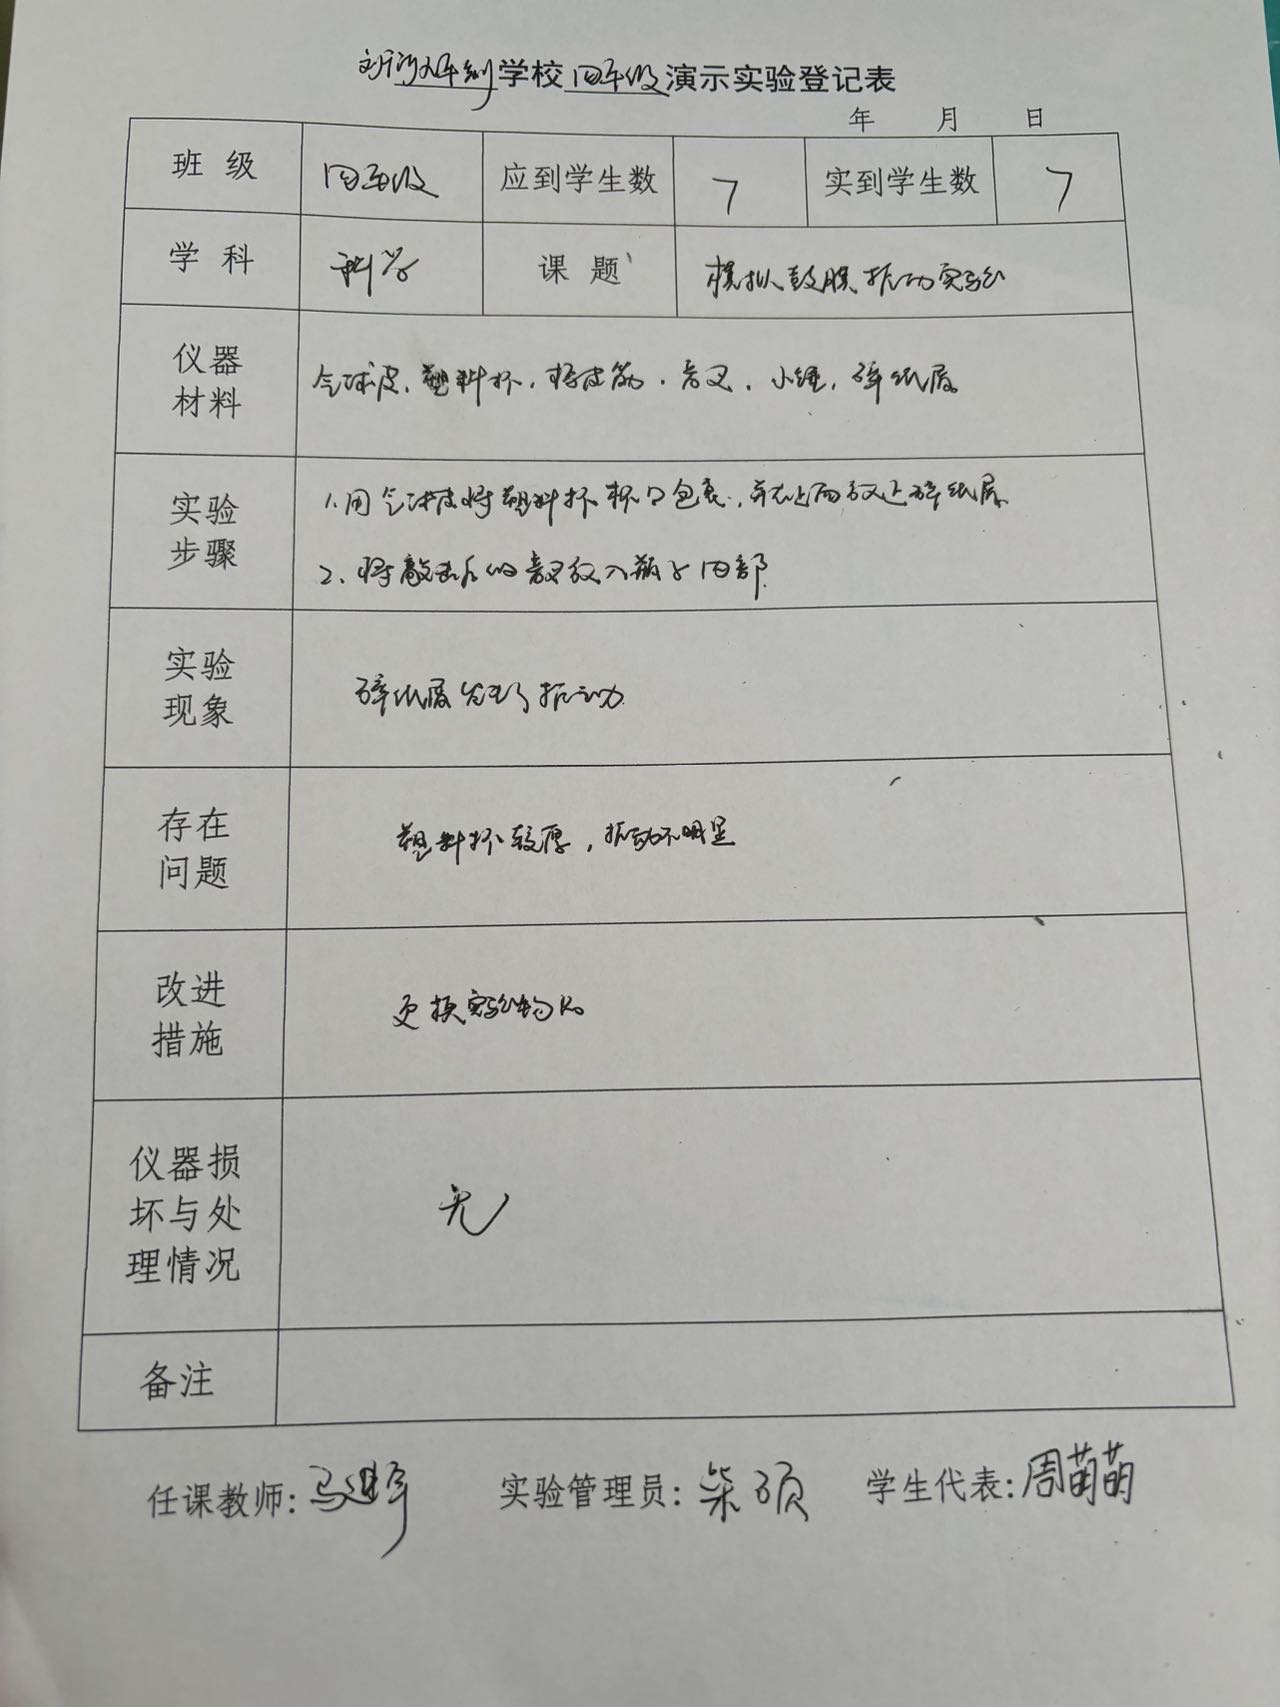 学校四年级演示实验登记表
年 月 日
班级 四年级 应到学生数 7 实到学生数 7
学科 科学 课题 模拟鼓膜振动实验
仪器材料 气球皮、塑料杯、橡皮筋、音叉、小锤、碎纸屑
实验步骤 1.用气球皮将塑料杯杯口包裹,并在上面放上碎纸屑
2、将敲击后的音叉放入瓶子内部
实验现象 碎纸屑发生了振动
存在问题 塑料杯较厚,振动不明显
改进措施 更换实验物品
仪器损坏与处理情况 无
备注
任课教师: 实验管理员:柴硕 学生代表:周萌萌